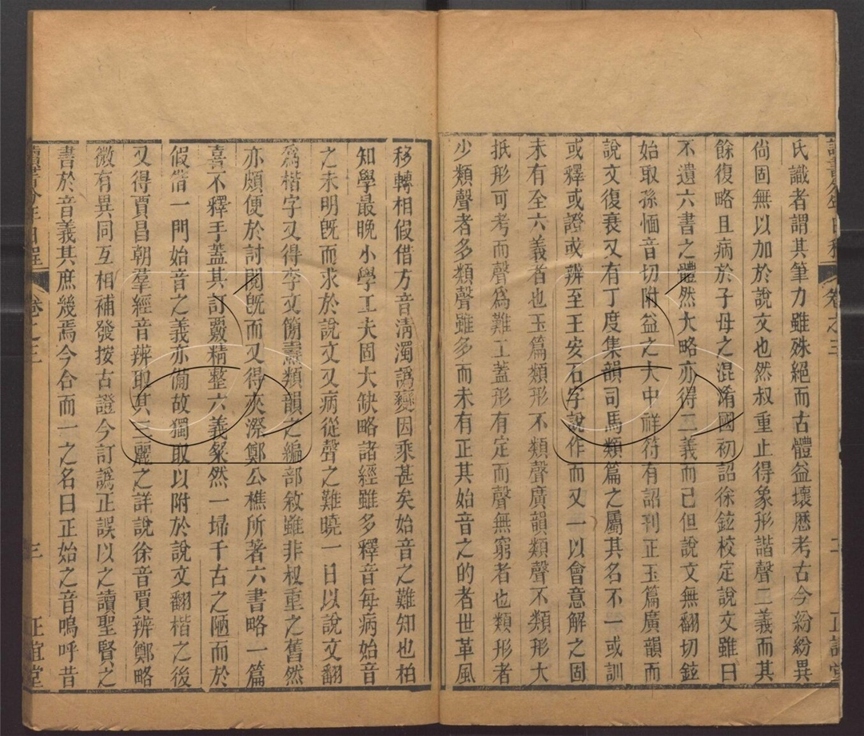 氏識者謂其筆力雖殊絕而古體益壞歷考古今紛紛異
尚固無以加於說文也然叔重止得象形諧聲二義而其
餘復略且病於子母之混淆國初詔徐鉉校定說文雖曰
不遺六書之體然大略亦得二義而已但說文無翻切鉉
始取孫愐音切附益之大中祥符有詔刋正玉篇廣韻而
說文復衰又有丁度集韻司馬類篇之屬其名不一或訓
或釋或證或辨至王安石字說作而又一以會意解之固
未有全六義者也玉篇類形不類聲廣韻類聲不類形大
抵形可考而聲爲難工蓋形有定而聲無窮者也類形者
少類聲者多類聲雖多而未有正其始音之的者世革風
移轉相假借方音淸濁譌變因乘甚矣始音之難知也柏
知學最晚小學工夫固大缺略諸經雖多釋音每病始音
之未明旣而求於說文又病從聲之難曉一日以說文翻
爲楷字又得李文簡燾類韻之編部敘雖非叔重之舊然
亦頗便於討閱旣而又得夾漈鄭公樵所著六書略一篇
喜不釋手蓋其訂覈精整六義粲然一埽千古之陋而於
假借一門始音之義亦備故獨取以附於說文翻楷之後
又得賈昌朝羣經音辨取其三麗之詳說徐音賈辨鄭略
微有異同互相補發按古證今訂譌正誤以之讀聖賢之
書於音義其庶幾焉今合而一之名曰正始之音嗚呼昔
讀書分年日程
卷之三
三
正誼堂